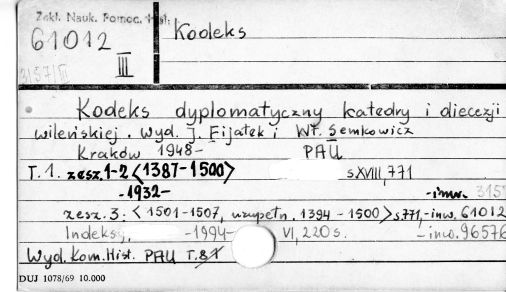 Zakł. Nauk. Pomoc. Hist.
61012
III
3157/III
Kodeks
Kodeks dyplomatyczny katedry i diecezji
wileńskiej. Wyd. J. Fijałek i Wł. Semkowicz
Kraków 1948- PAU
T.1. zesz. 1-2 <1387-1500> s XVIII, 771
-1932- -inw. 3157
zesz. 3. <1501-1507, uzupełn. 1394-1500> s. 771, -inw. 61012
Indeksy, -1994- VI, 220 s. -inw. 96576
Wyd. Kom. Hist. PAU T. 81
DUJ 1078/69 10.000